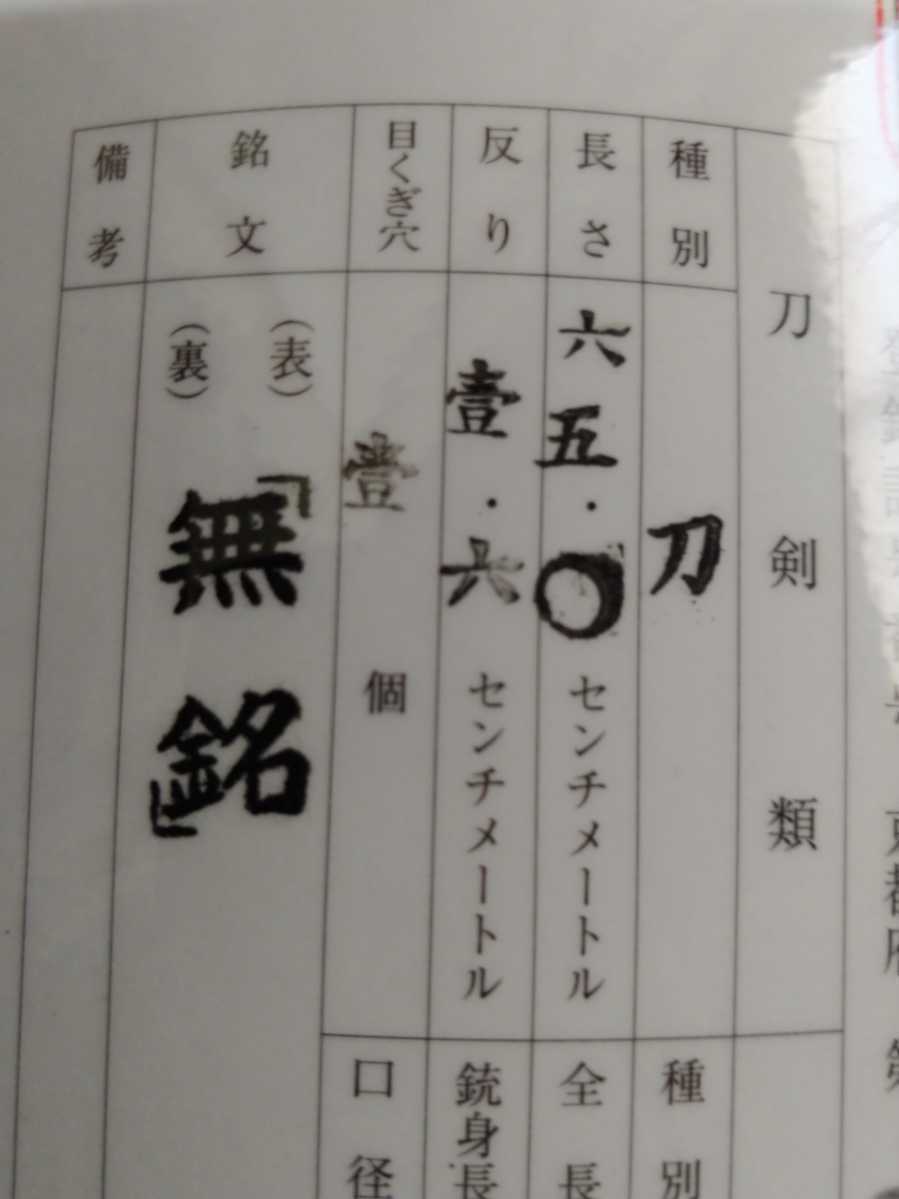 刀剣類
種別 刀
長さ 六五・〇センチメートル
反り 壹・六センチメートル
目くぎ穴 壹個
銘文 (表) (裏) 「無銘」
備考
種別
全長
銃身長
口径